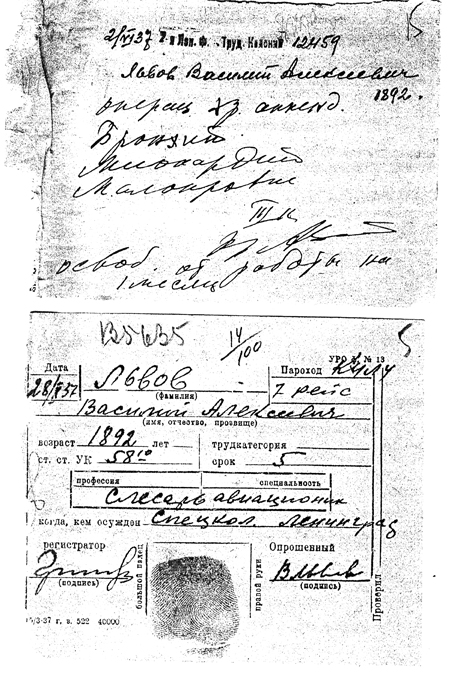 2/VI 37 2-я Лоп. Ф. Труд. Комиссий 12459
Львов Василий Алексеевич
1892.
операц аппенд.
Бронхит
Миокардит
Малокровие
III к
освоб. от работы на
1 месяц
В5635
14/100
УРО № 13
Дата
Пароход Кулу
28/ 37
ЛЬВОВ
7 рейс
(фамилия)
Василий Алексеевич
(имя, отчество, прозвище)
возраст 1892 лет
трудкатегория
ст. ст. УК 58¹⁰
срок 5
профессия специальность
Слесарь авиационик
когда, кем осужден Спецкол. Ленинград
регистратор
Опрошенный
большой палец
правой руки
ВЛьвов
(подпись)
(подпись)
Проверил
/3-37 г. з. 522 40000